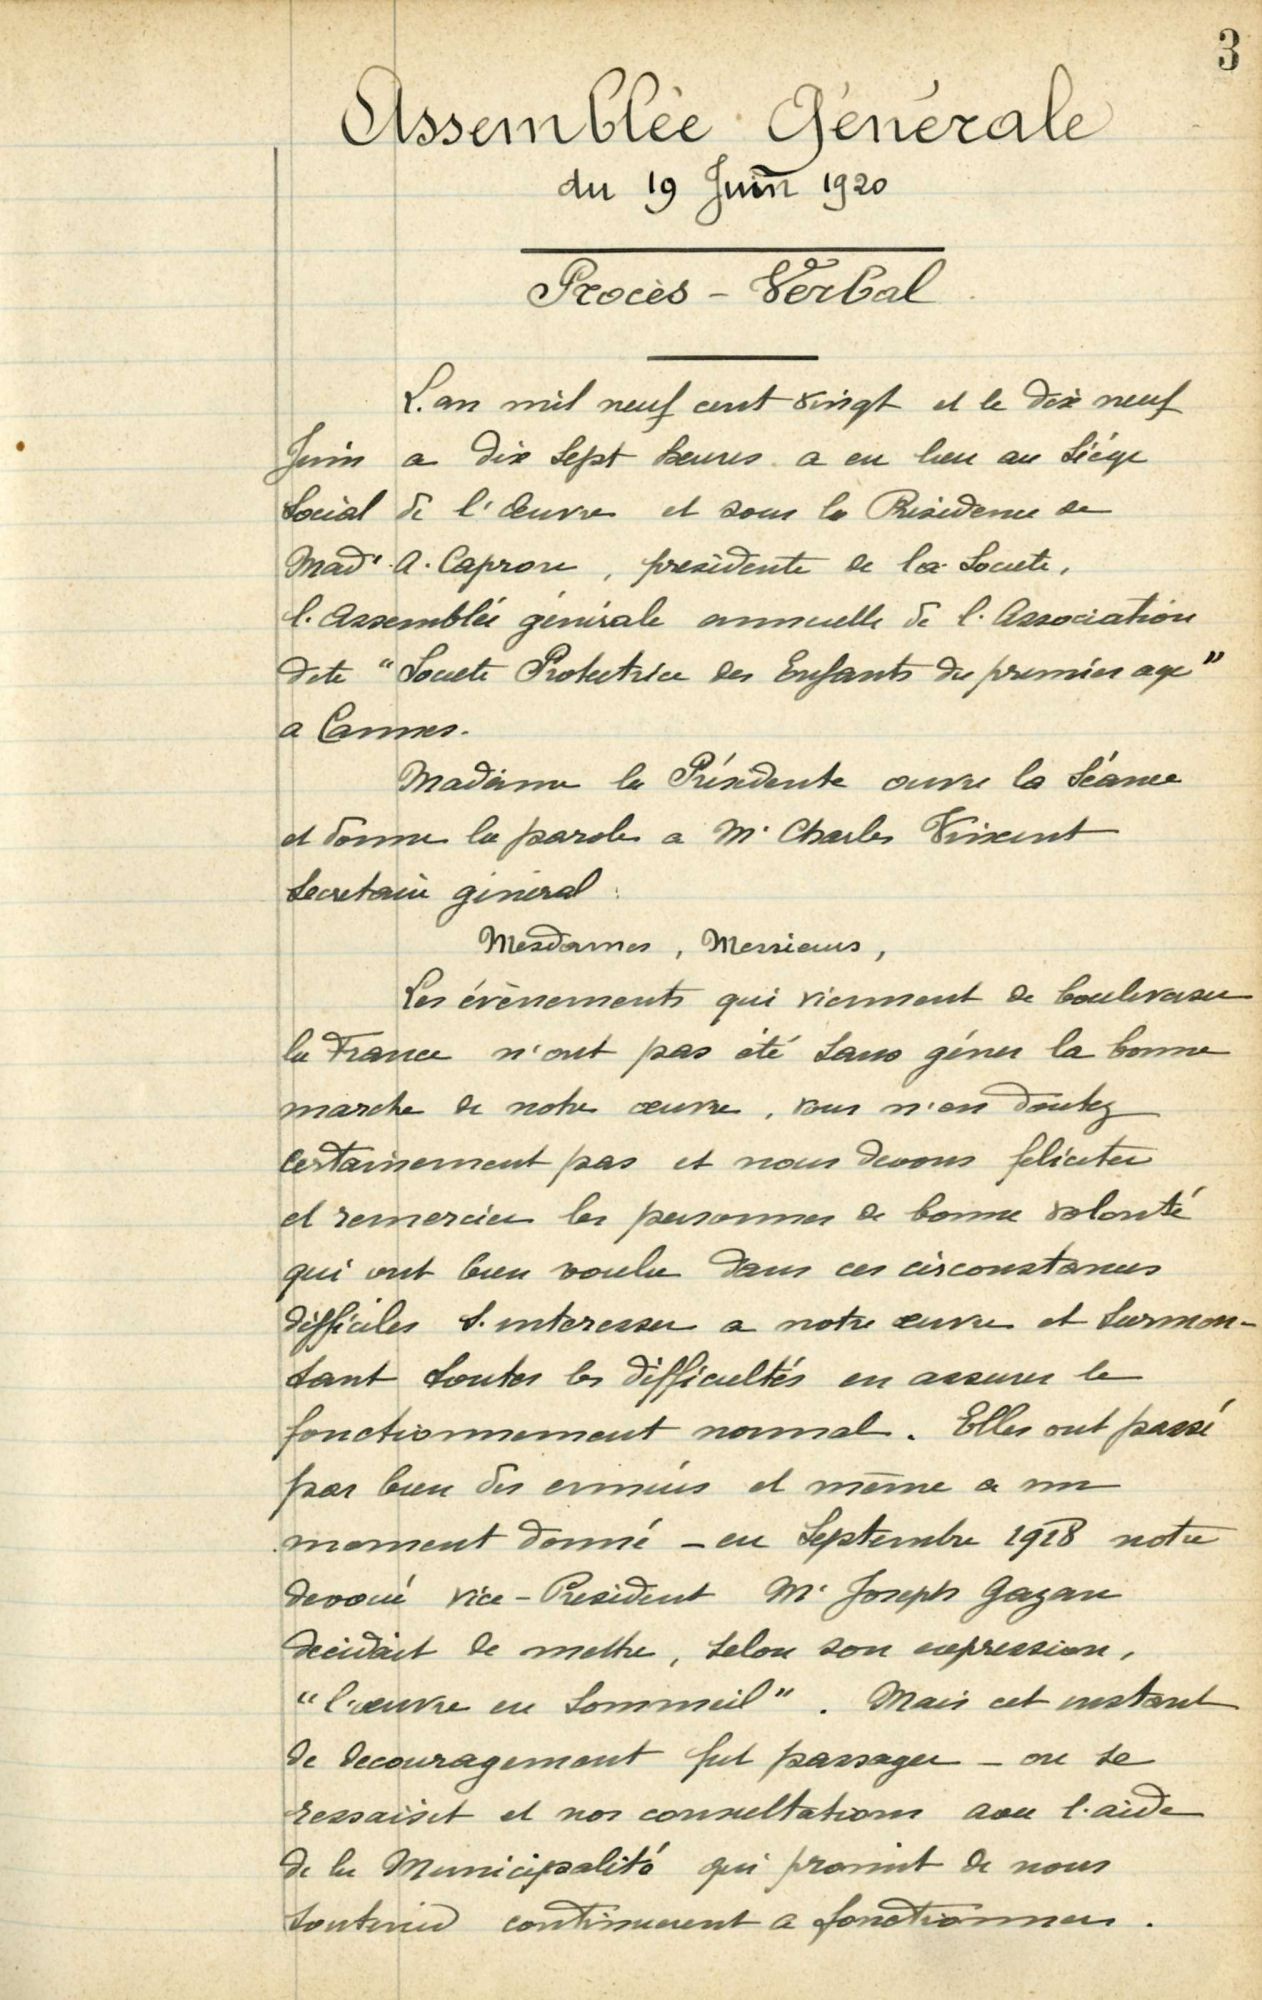 3
Assemblée Générale
du 19 Juin 1920
Procès-Verbal
L'an mil neuf cent vingt et le dix neuf
Juin a dix sept heures a eu lieu au Siége
Social de l'Œuvre et sous la Présidence de
Mad. A. Capron, présidente de la Societe,
l'Assemblée générale annuelle de l'Association
dite "Societe Protectrice des Enfants du premier age"
a Cannes.
Madame la Présidente ouvre la Séance
et donne la parole a Mr Charles Vincent
Secretaire général :
Mesdames, Messieurs,
Les évènements qui viennent de bouleverser
la France n'ont pas été sans géner la bonne
marche de notre œuvre, vous n'en doutez
certainement pas et nous devons feliciter
et remercier les personnes de bonne volonté
qui ont bien voulu dans ces circonstances
difficiles s'interesser a notre œuvre et surmon-
tant toutes les difficultés en assurer le
fonctionnement normal. Elles ont passé
par bien des ennuis et même a un
moment donné - en Septembre 1918 notre
devoué vice-President Mr Joseph Gazan
decidait de mettre, selon son expression,
"l'œuvre en Sommeil". Mais cet instant
de decouragement fut passager - on se
ressaisit et nos consultations avec l'aide
de la Municipalité qui promit de nous
soutenir continuerent a fonctionner.